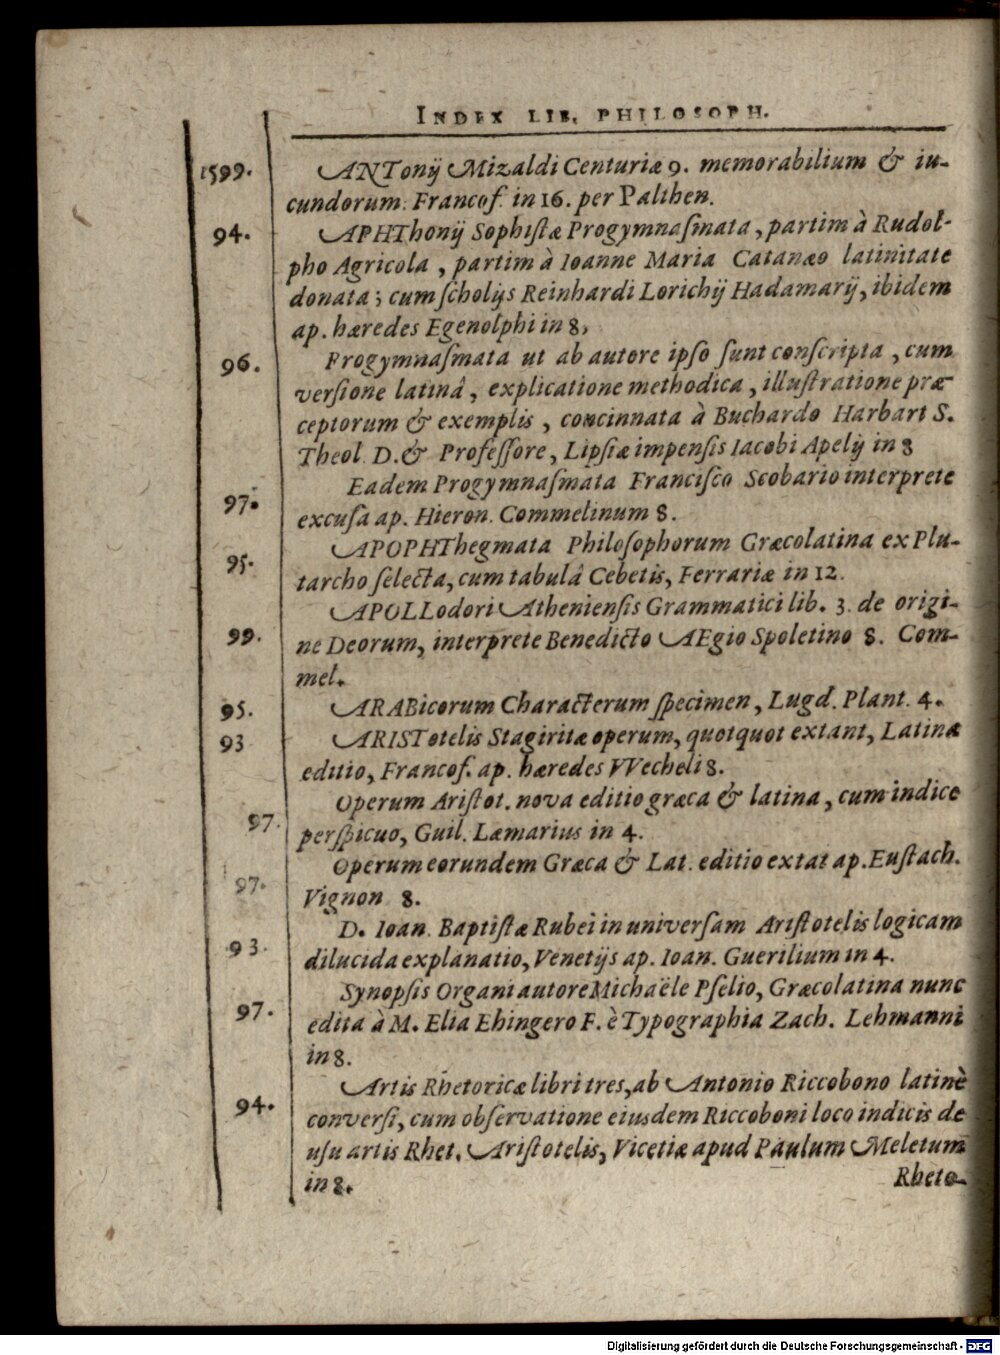 INDEX LIB. PHILOSOPH.
1599. ANTonij Mizaldi Centuriæ 9. memorabilium & iu-
cundorum. Francof. in 16. per Palthen.
94. APHThonij Sophistæ Progymnaſmata, partim à Rudol-
pho Agricola, partim à Ioanne Maria Catanæo latinitate
donata; cum ſcholijs Reinhardi Lorichij Hadamarij, ibidem
ap. hæredes Egenolphi in 8,
96. Progymnaſmata ut ab autore ipſo ſunt conſcripta, cum
verſione latinâ, explicatione methodica, illuſtratione præ-
ceptorum & exemplis, concinnata à Buchardo Harbart S.
Theol. D. & Profeſſore, Lipſiæ impenſis Iacobi Apelij in 8
97. Eadem Progymnaſmata Franciſco Scobario interprete
excuſa ap. Hieron. Commelinum 8.
95. APOPHThegmata Philoſophorum Græcolatina ex Plu-
tarcho ſelecta, cum tabulâ Cebetis, Ferrariæ in 12.
APOLLodori Athenienſis Grammatici lib. 3. de origi-
99. ne Deorum, interprete Benedicto AEgio Spoletino 8. Com-
mel.
95. ARABicorum Characterum ſpecimen, Lugd. Plant. 4.
93 ARISTotelis Stagiritæ operum, quotquot extant, Latinæ
editio, Francof. ap. hæredes VVecheli 8.
Operum Ariſtot. nova editio græca & latina, cum indice
97. perſpicuo, Guil. Læmarius in 4.
Operum eorundem Græca & Lat. editio extat ap. Euſtach.
97. Vignon 8.
D. Ioan. Baptiſtæ Rubei in univerſam Ariſtotelis logicam
93. dilucida explanatio, Venetijs ap. Ioan. Guerilium in 4.
Synopſis Organi autore Michaële Pſello, Græcolatina nunc
97. edita à M. Elia Ehingero F. è Typographia Zach. Lehmanni
in 8.
Artis Rhetoricæ libri tres, ab Antonio Riccobono latinè
94. converſi, cum obſervatione eiusdem Riccoboni loco indicis de
uſu artis Rhet. Ariſtotelis, Vicetiæ apud Paulum Meletum
in 8.
Rheto-
Digitalisierung gefördert durch die Deutsche Forschungsgemeinschaft - DFG